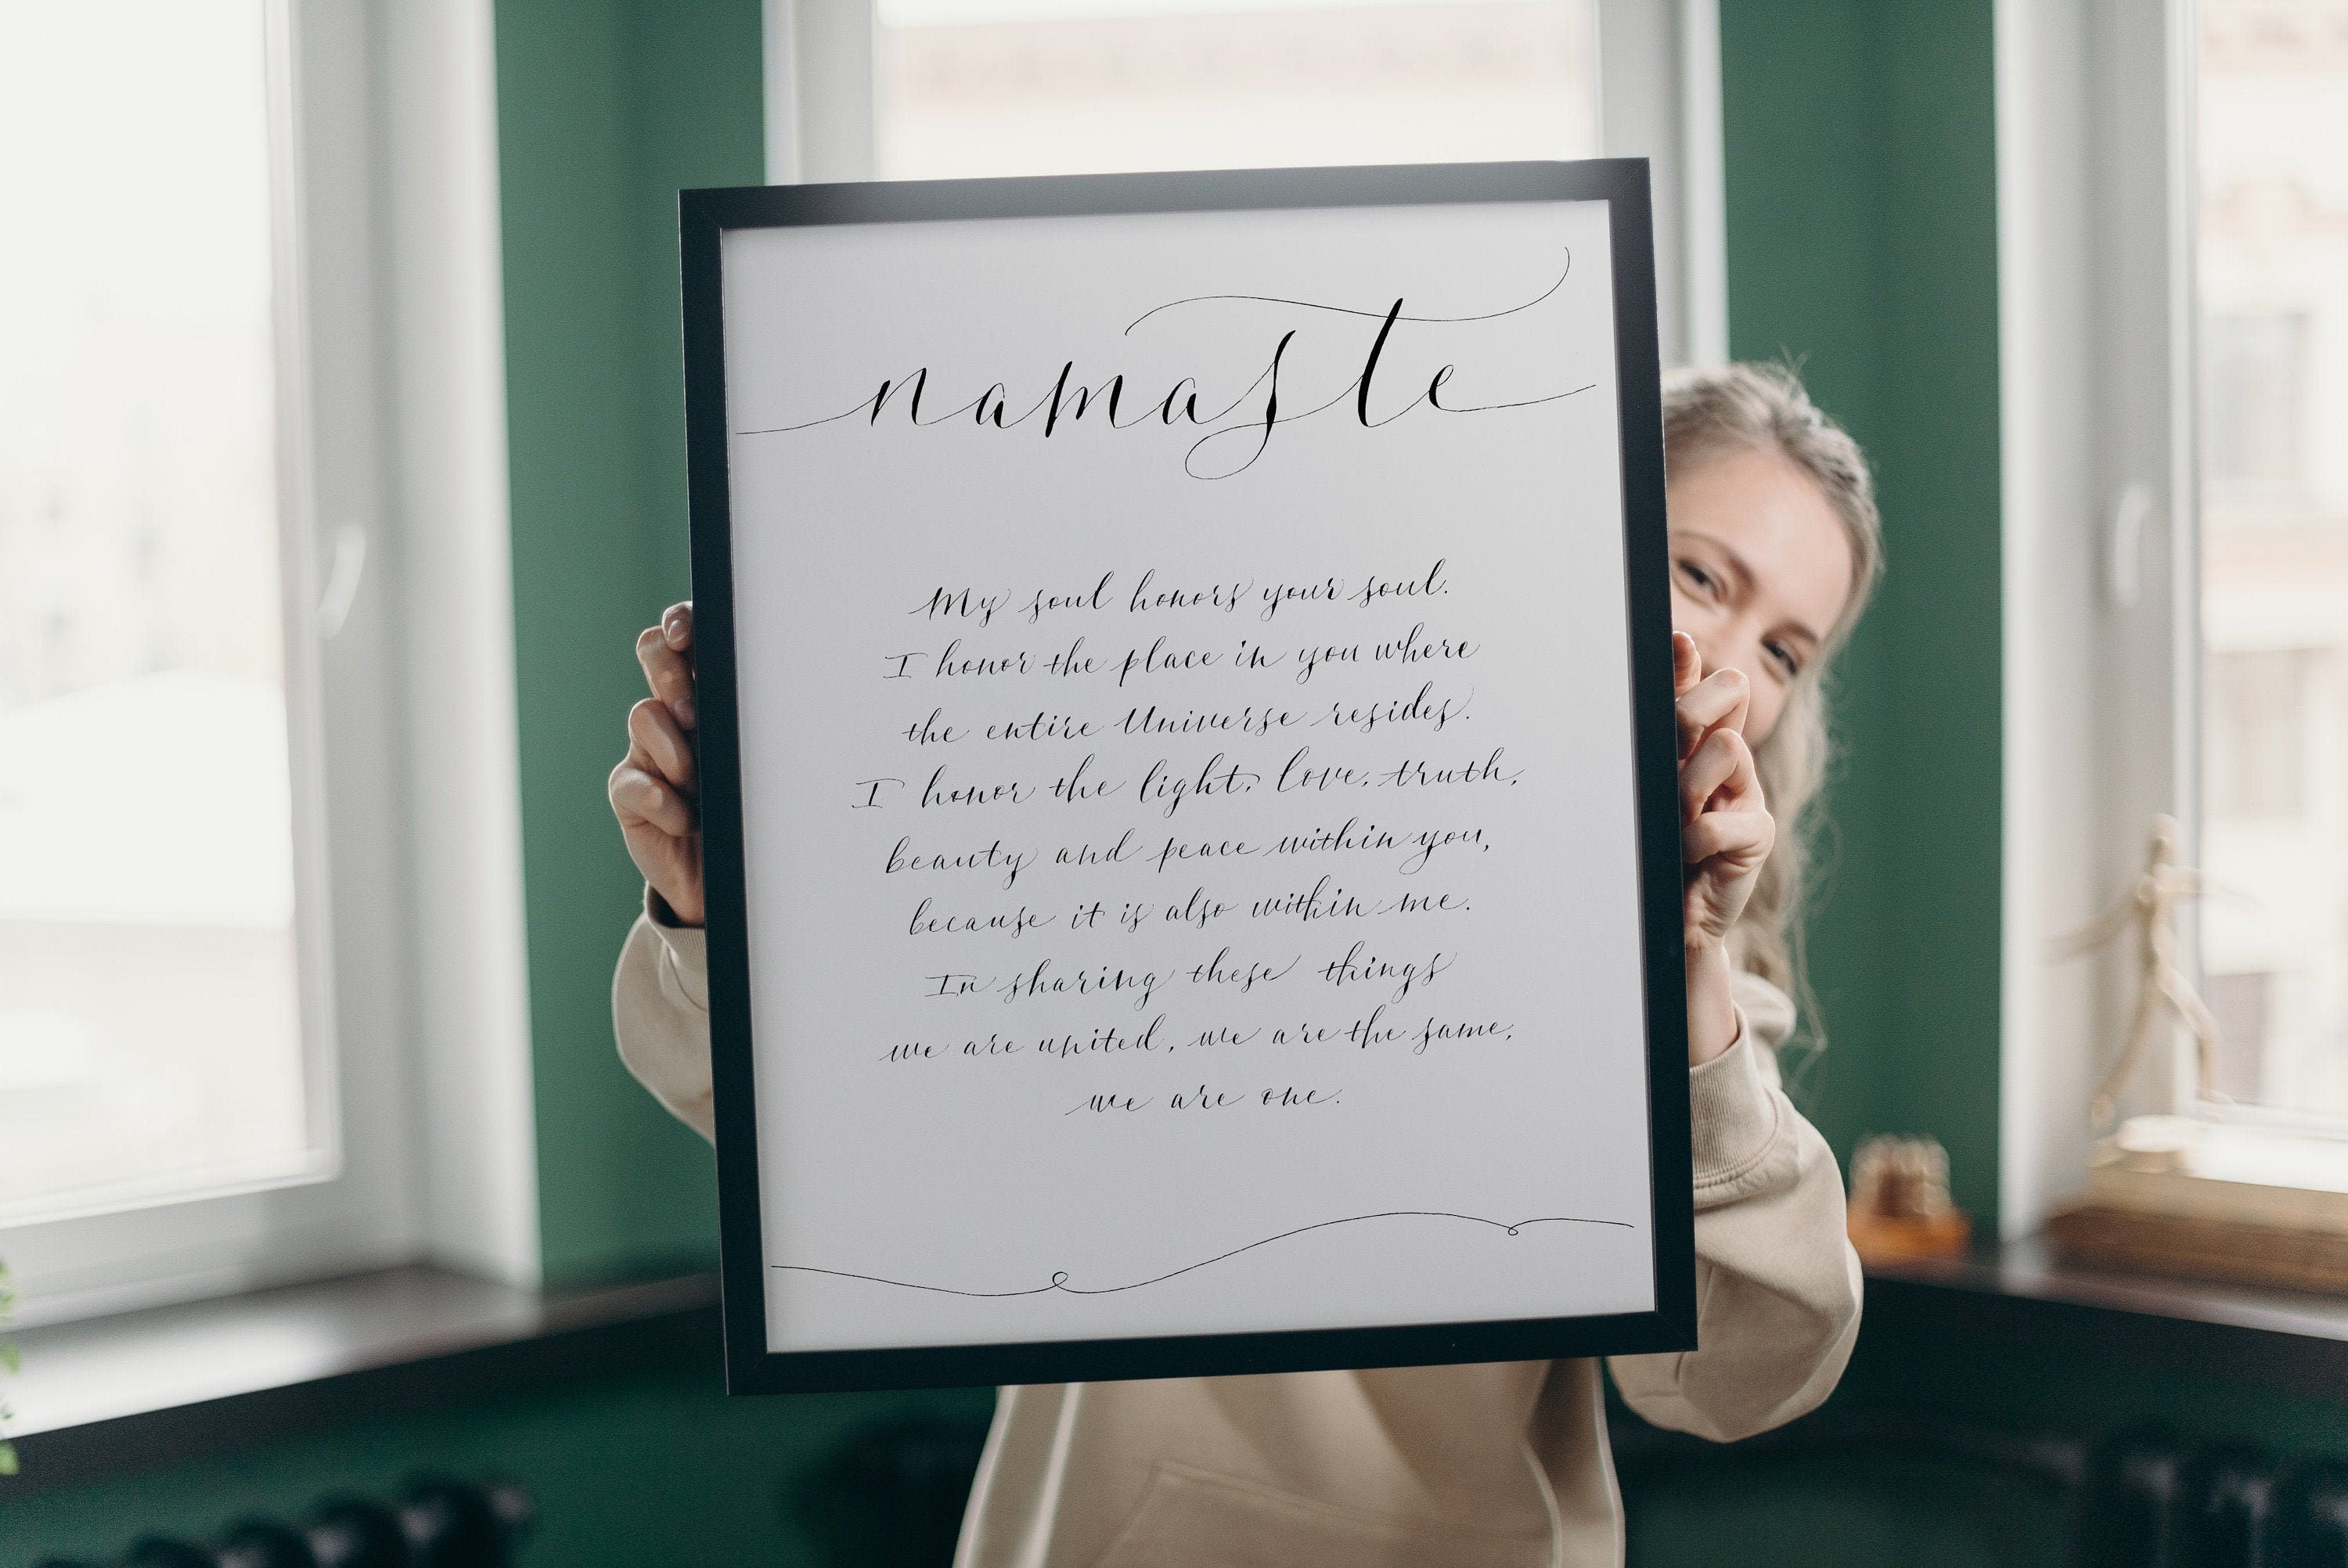 namaste
My soul honors your soul.
I honor the place in you where
the entire Universe resides.
I honor the light, love, truth,
beauty and peace within you,
because it is also within me.
In sharing these things
we are united, we are the same,
we are one.